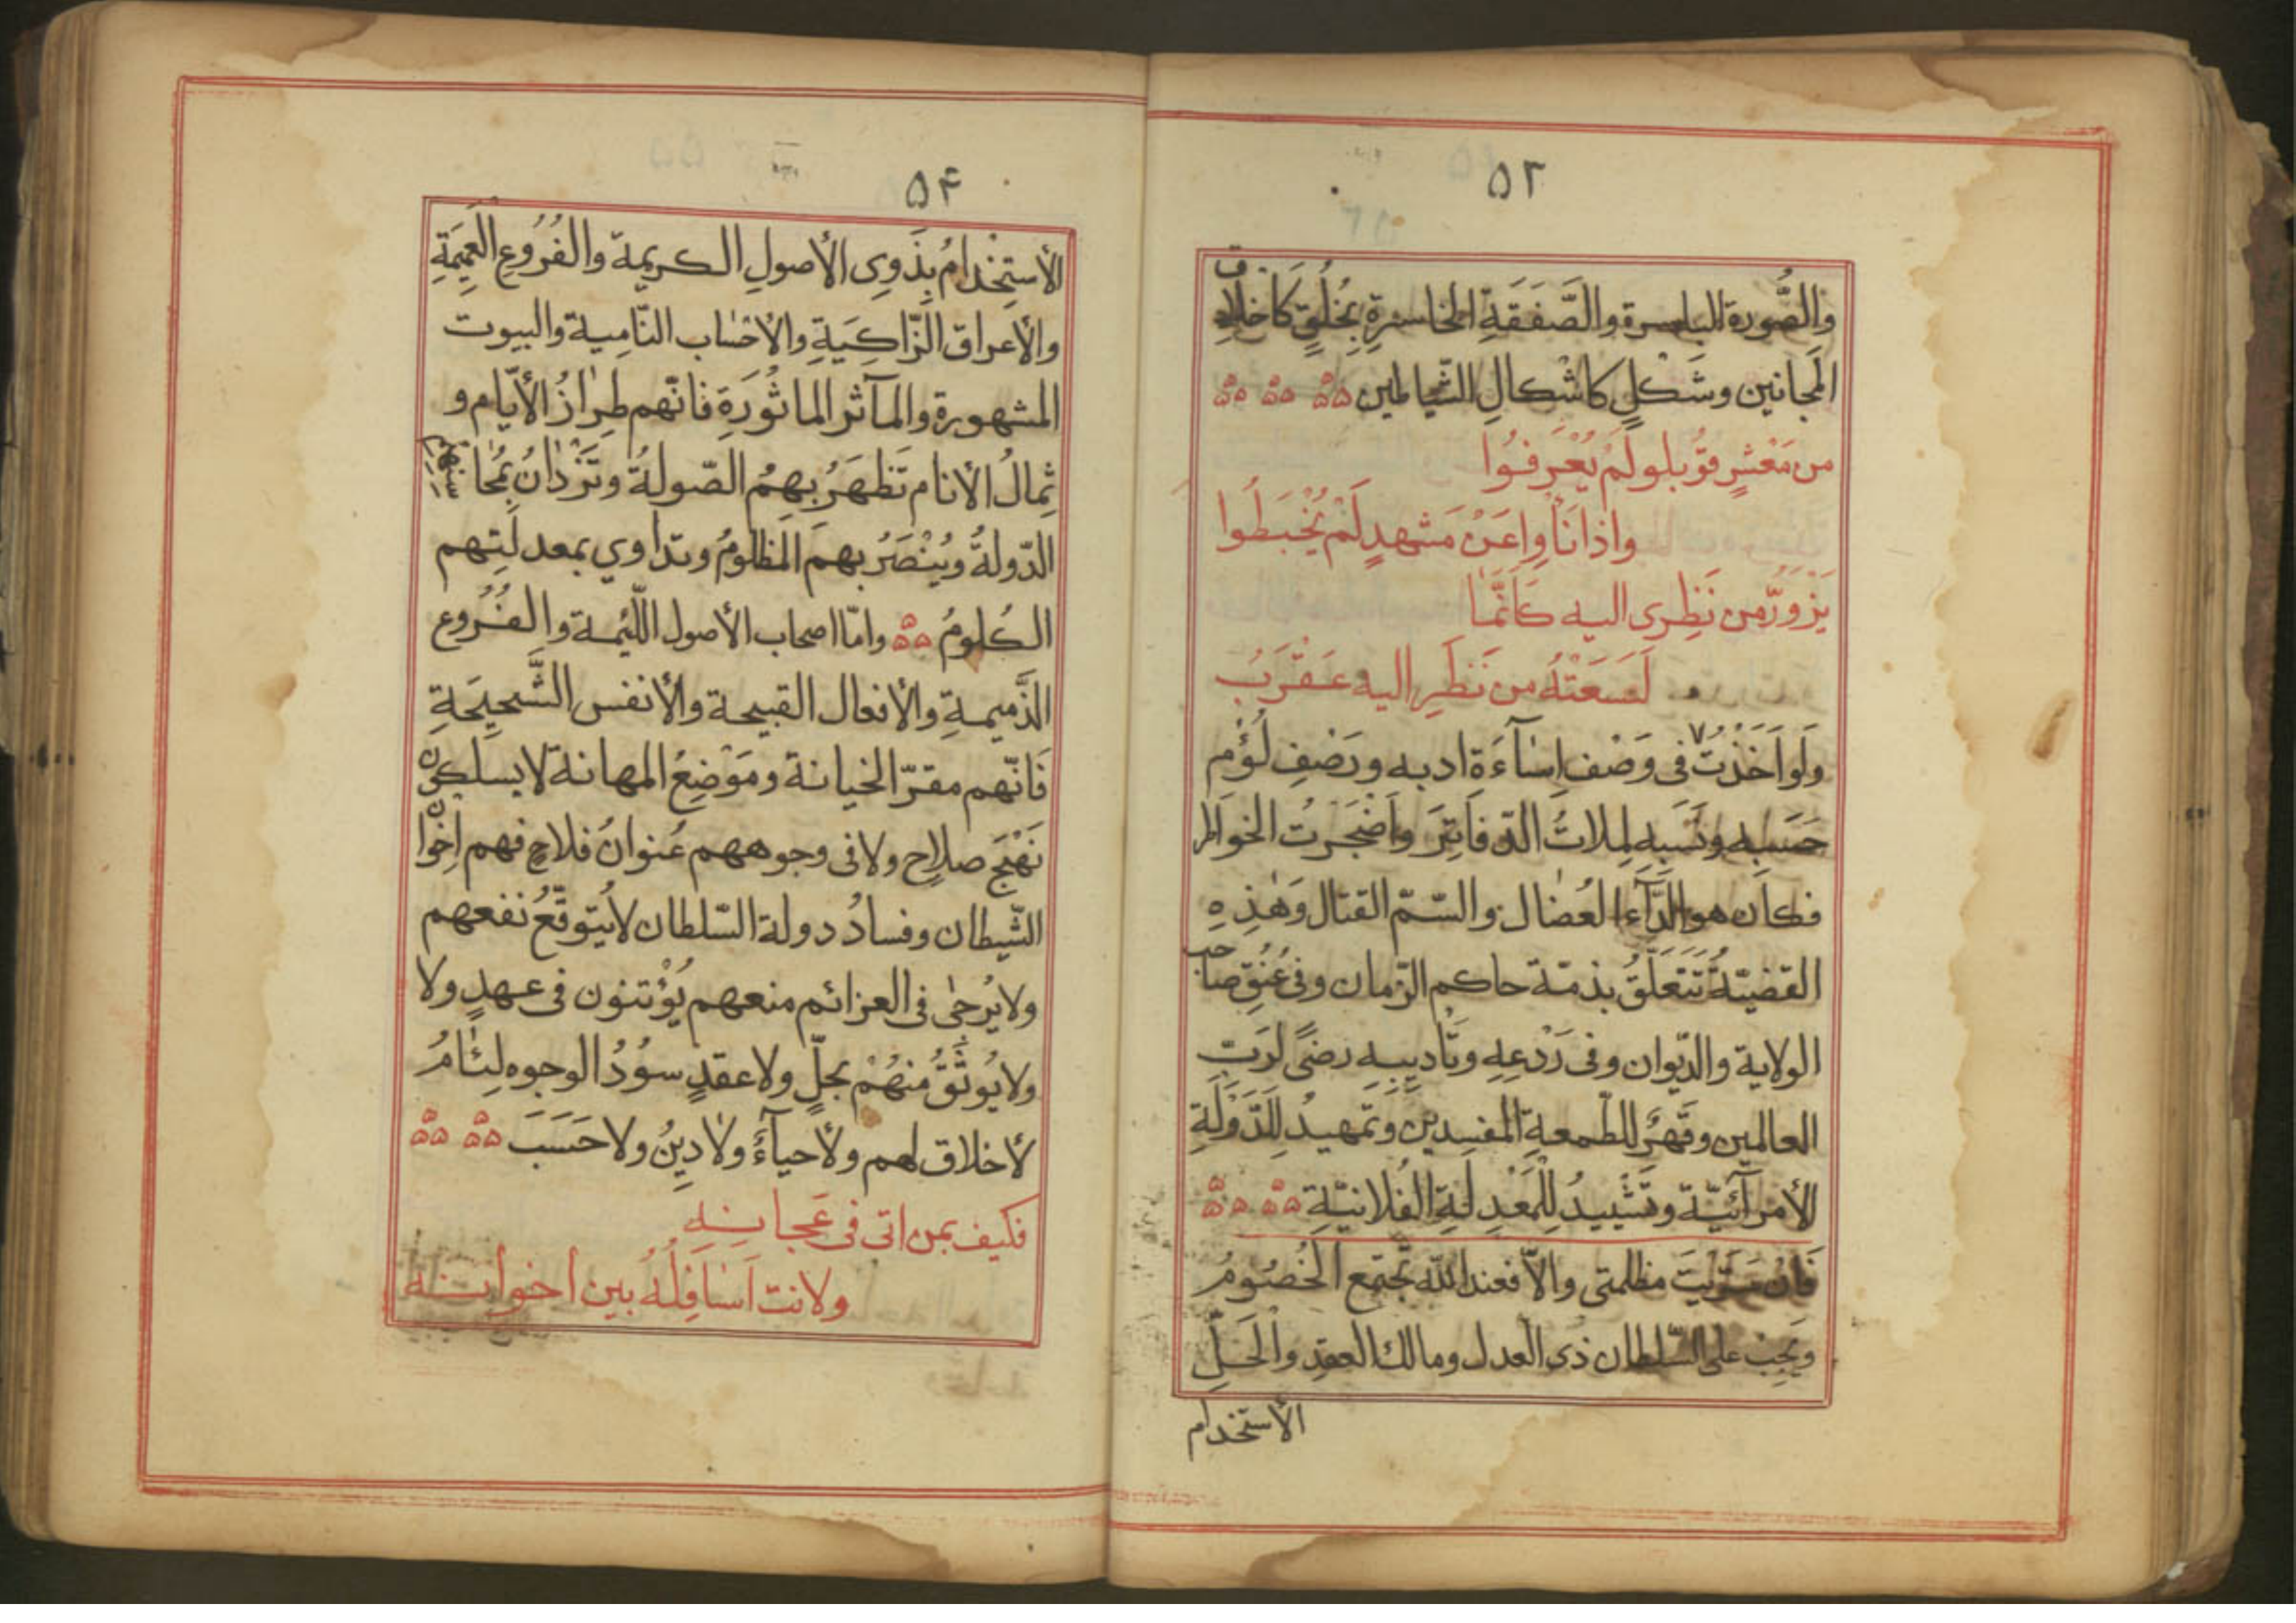 ٥٣
والصُّورة الباسرة والصَّفَقَةِ الخاسرةِ بِخُلُقٍ كأخلاق
المجانين وشَكْلٍ كاشْكالِ الشّياطين
من مَعْشرٍ فوُّبلو لم يُعْرفُوا
واذا نَأَوا عَنْ مَشهدٍ لَمْ يُخْبَطُوا
يَزْوَرُّ من نَظِرى اليه كَأَنَّمَا
لَسَعَتْهُ من نَظَرِ اليه عَقْرَبُ
وَلَو اَخَذْتُ فى وَصْف اِسَآءَةِ ادبه ورَصْفِ لُؤْم
حَسَبِه ونَسَبِهِ لملات الدّفاتِرَ واَضْجَرتُ الخواطر
فكان هو الدَّآء العُضال والسّمّ القتال وَهٰذِهِ
القضيّةُ تَتَعَلَّقُ بذمّة حاكم الزّمان وفى عُنُقِ صاحب
الولاية والدّيوان وفى رَدْعِهِ وتَأديبِهِ رضىً لرَبّ
العالمين وقَهْرٌ للطّمعةِ المفسِدين وتمهيدُ لِلدَّوْلَةِ
الأمرآئيّة وتَشْييدُ لِلْمَعْدِلَةِ الفُلانيّةِ
فَان سَوَّيْتَ مظلمتى والاّ فعند اللّه تجتمع الخُصُومُ
ويَجِبُ على السّلطان ذى العدل ومالك العقدِ والحَلِّ
الأستخدام
٥٤
الأستِخْدامُ بِذَوِى الأصولِ الكريمة والفُرُوعِ العَمِيمَةِ
والأعراق الزّاكِيَةِ والأحسٰاب النّامِية والبيوت
المشهورة والمآثر الماثُورَةِ فانّهم طِرازُ الأيّام و
ثِمالُ الأنام تَظهَرُ بِهِمُ الصّولةُ وتَزْدٰانُ بمُحاسنهم
الدّولةُ ويُنْصَرُ بهم المَظلومُ وتداوي بمعدلَتِهم
الكُلومُ وامّا اصحاب الأصول اللّئيمة والفُرُوع
الذّميمةِ والأفعال القبيحة والأنفس الشَّحيحَةِ
فَانّهم مقرّ الخيانة ومَوْضِعُ المهانة لا يسلكون
نَهْجَ صلاحٍ ولا فى وجوههم عُنوانُ فلاحٍ فهم اِخْوان
الشّيطان وفسادُ دولة السّلطان لا يُتوقّعُ نفعهم
ولا يُرجٰى فى العزائم منعهم يُؤْتنون فى عهدٍ ولا
ولا يُوثَقُ منهُمْ بحلٍّ ولا عقدٍ سوُدُ الوجوه لِئٰامُ
لأخلاق لهم ولا حيآءُ ولا دِينُ ولا حَسَبَ
فكيف بمن اتى فى عَجانِهِ
ولانت اَسَافِلُهُ بين اخوانه